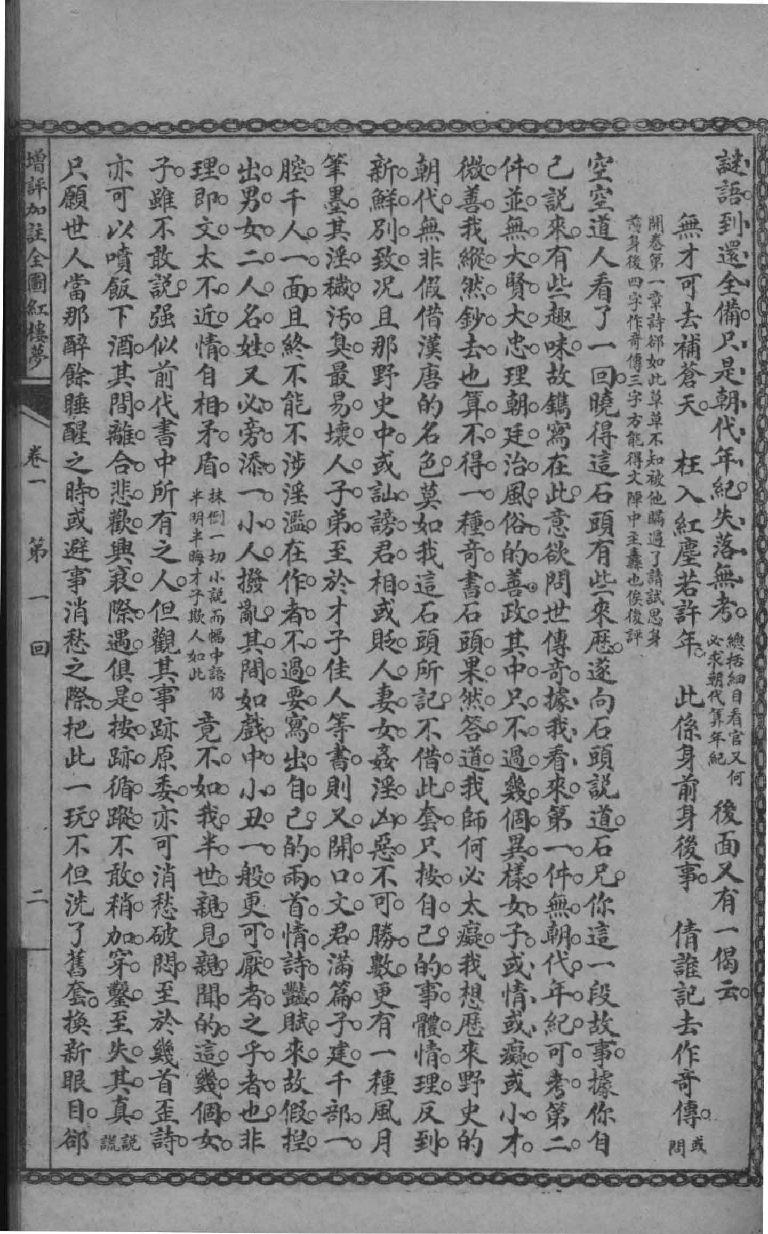 謎語到還全備只是朝代年紀失落無考總括細目看官又何必求朝代算年紀後面又有一偈云
無才可去補蒼天 枉入紅塵若許年 此係身前身後事 倩誰記去作奇傳或問
開卷第一章詩卻如此草草不知被他瞞過了請試思身前身後四字作奇傳三字方能得文陣中主纛也俟後評
空空道人看了一回曉得這石頭有些來歷遂向石頭說道石兄你這一段故事據你自
己說來有些趣味故鐫寫在此意欲問世傳奇據我看來第一件無朝代年紀可考第二
件並無大賢大忠理朝廷治風俗的善政其中只不過幾個異樣女子或情或癡或小才
微善我縱然鈔去也算不得一種奇書石頭果然答道我師何必太癡我想歷來野史的
朝代無非假借漢唐的名色莫如我這石頭所記不借此套只按自己的事體情理反到
新鮮別致况且那野史中或訕謗君相或貶人妻女姦淫凶惡不可勝數更有一種風月
筆墨其淫穢汚臭最易壞人子弟至於才子佳人等書則又開口文君滿篇子建千部一
腔千人一面且終不能不涉淫濫在作者不過要寫出自己的兩首情詩豔賦來故假揑
出男女二人名姓又必旁添一小人撥亂其間如戲中小丑一般更可厭者之乎者也非
理即文太不近情自相矛盾抹倒一切小說而幅中語仍半明半晦才子欺人如此竟不如我半世親見親聞的這幾個女
子雖不敢說强似前代書中所有之人但觀其事跡原委亦可消愁破悶至於幾首歪詩
亦可以噴飯下酒其間離合悲歡興衰際遇俱是按跡循蹤不敢稍加穿鑿至失其真說謊
只願世人當那醉餘睡醒之時或避事消愁之際把此一玩不但洗了舊套換新眼目卻
增評加註全圖紅樓夢 卷一 第一回 二